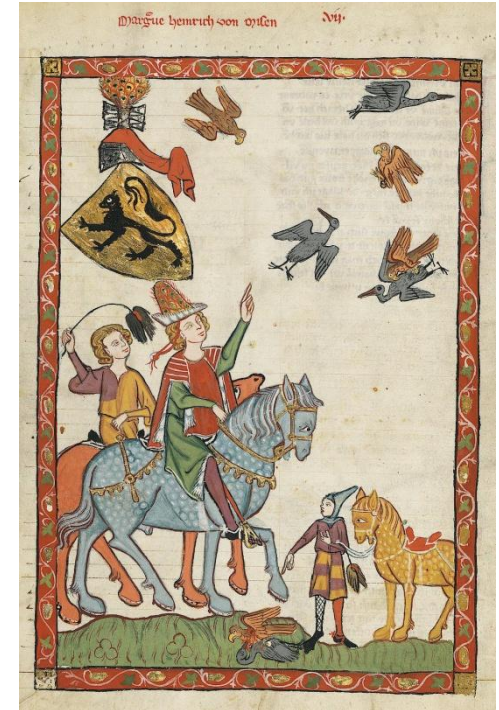 Margue heinrich von Misen vij.